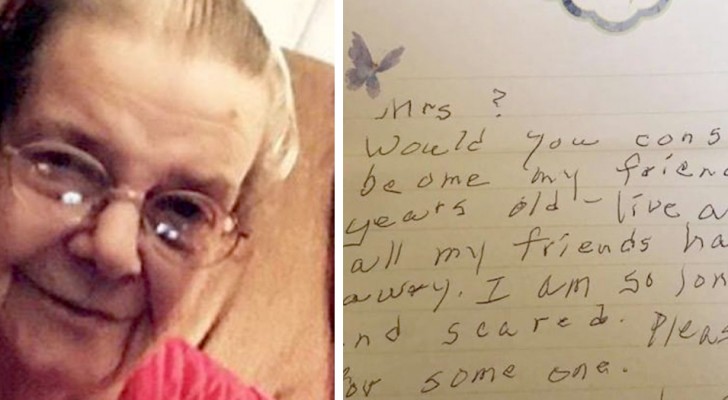 Mrs ?
Would you cons
be ome my frien
years old - live a
all my friends ha
away. I am so lon
nd scared. Pleas
for some one.